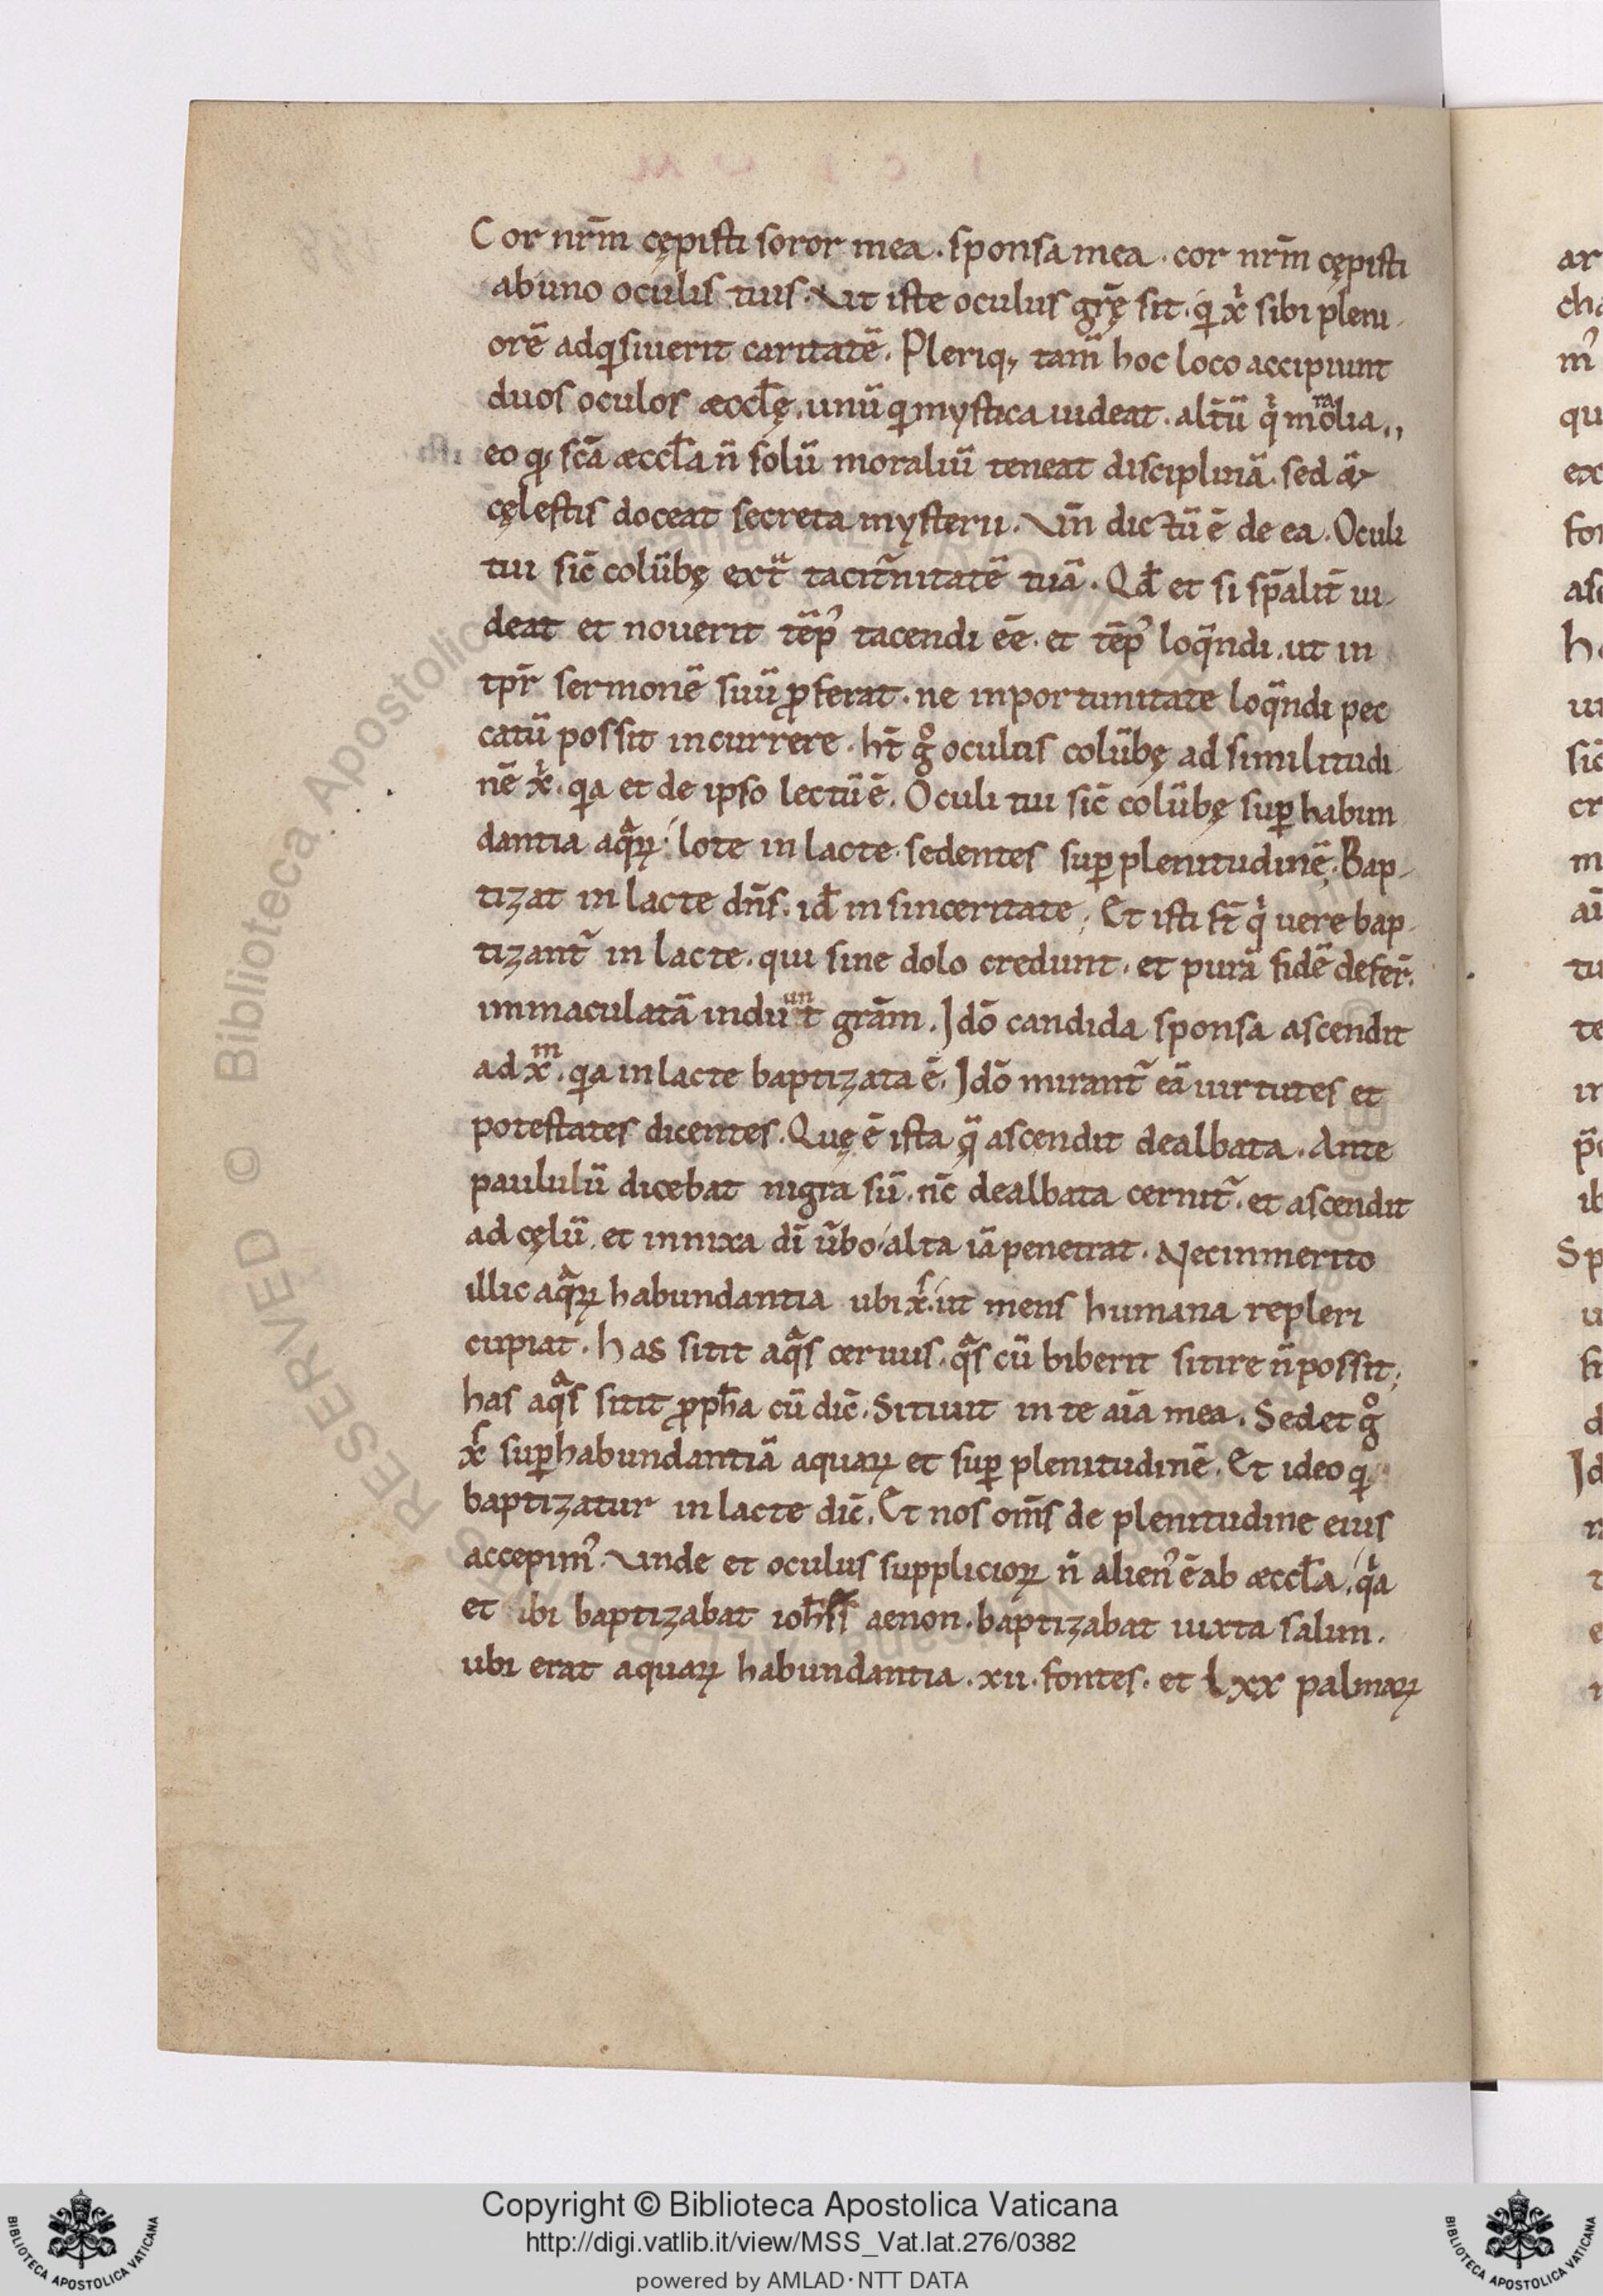 Cor nr̄m cępisti soror mea. sponsa mea. cor nr̄m cępisti
ab uno oculis tuis. Vıt iste oculus grę̄ sit. q̇ x̄ sibi pleni-
orē adqsiuerit caritatē. Pleriq; tam̄ hoc loco accipiunt
duos oculos æccl̄ę. unū q mystica uideat. alt̄ū q̇ moralia.,
eo q; sc̄a æccl̄a n̄ solū moraliū teneat disciplinā. sed &
cęlestis doceat secreta mysterii. Vn̄ dictū ē de ea. Oculi
tui sic̄ colūbę ext̄ tacit̄nitatē tuā. Qd̄ et si sp̄alit̄ ui-
deat et nouerit tēp᾽ tacendi ēe. et tēp᾽ loq̄ndi. ut in
tpr̄ sermonē suū ꝓferat. ne inportunitate loq̄ndi pec
catū possit incurrere. ht̄ g° oculus colūbę ad similitudi-
nē x̄. qa et de ipso lectū ē. Oculi tui sic̄ colūbę suꝑ habun
dantia aqᵃꝝ. lote in lacte. sedentes suꝑ plenitudinē. Bap-
tizat in lacte dn̄s. id̄ in sinceritate; Et isti st̄ q̇ uere bap-
tizant᷑ in lacte. qui sine dolo credunt. et purā fidē defer̄.
immaculatā induunt grām. Idō candida sponsa ascendit
ad xᵐ. qa in lacte baptizata ē. Idō mirant᷑ eā uirtutes et
potestates dicentes. Quę ē ista q̄ ascendit dealbata. Ante
paululū dicebat nigra sū. nc̄ dealbata cernit᷑. et ascendit
ad cęlū. et innixa dī ūbo alta iā penetrat. Nec inmerito
illic aqᵃꝝ habundantia ubi xˢ. ut mens humana repleri
cupiat. has sitit aqᵃs ceruus. qᵃs cū biberit sitire n̄ possit;
has aqᵃs sitit ꝓph̄a cū dic̄. Sitiuit in te aīa mea. Sedet g°
xˢ suꝑ habundantiā aquaꝝ et suꝑ plenitudinē. Et ideo q
baptizatur in lacte dic̄. Et nos om̄s de plenitudine eius
accepim᾽. Vnde et oculus supplicioꝝ n̄ alien᾽ ē ab æccl̄a. qᵃ
et ibi baptizabat ioh̄s aenon. baptizabat iuxta salim.
ubi erat aquaꝝ habundantia. xii. fontes. et lxx palmaꝝ
Copyright © Biblioteca Apostolica Vaticana
http://digi.vatlib.it/view/MSS_Vat.lat.276/0382
powered by AMLAD·NTT DATA